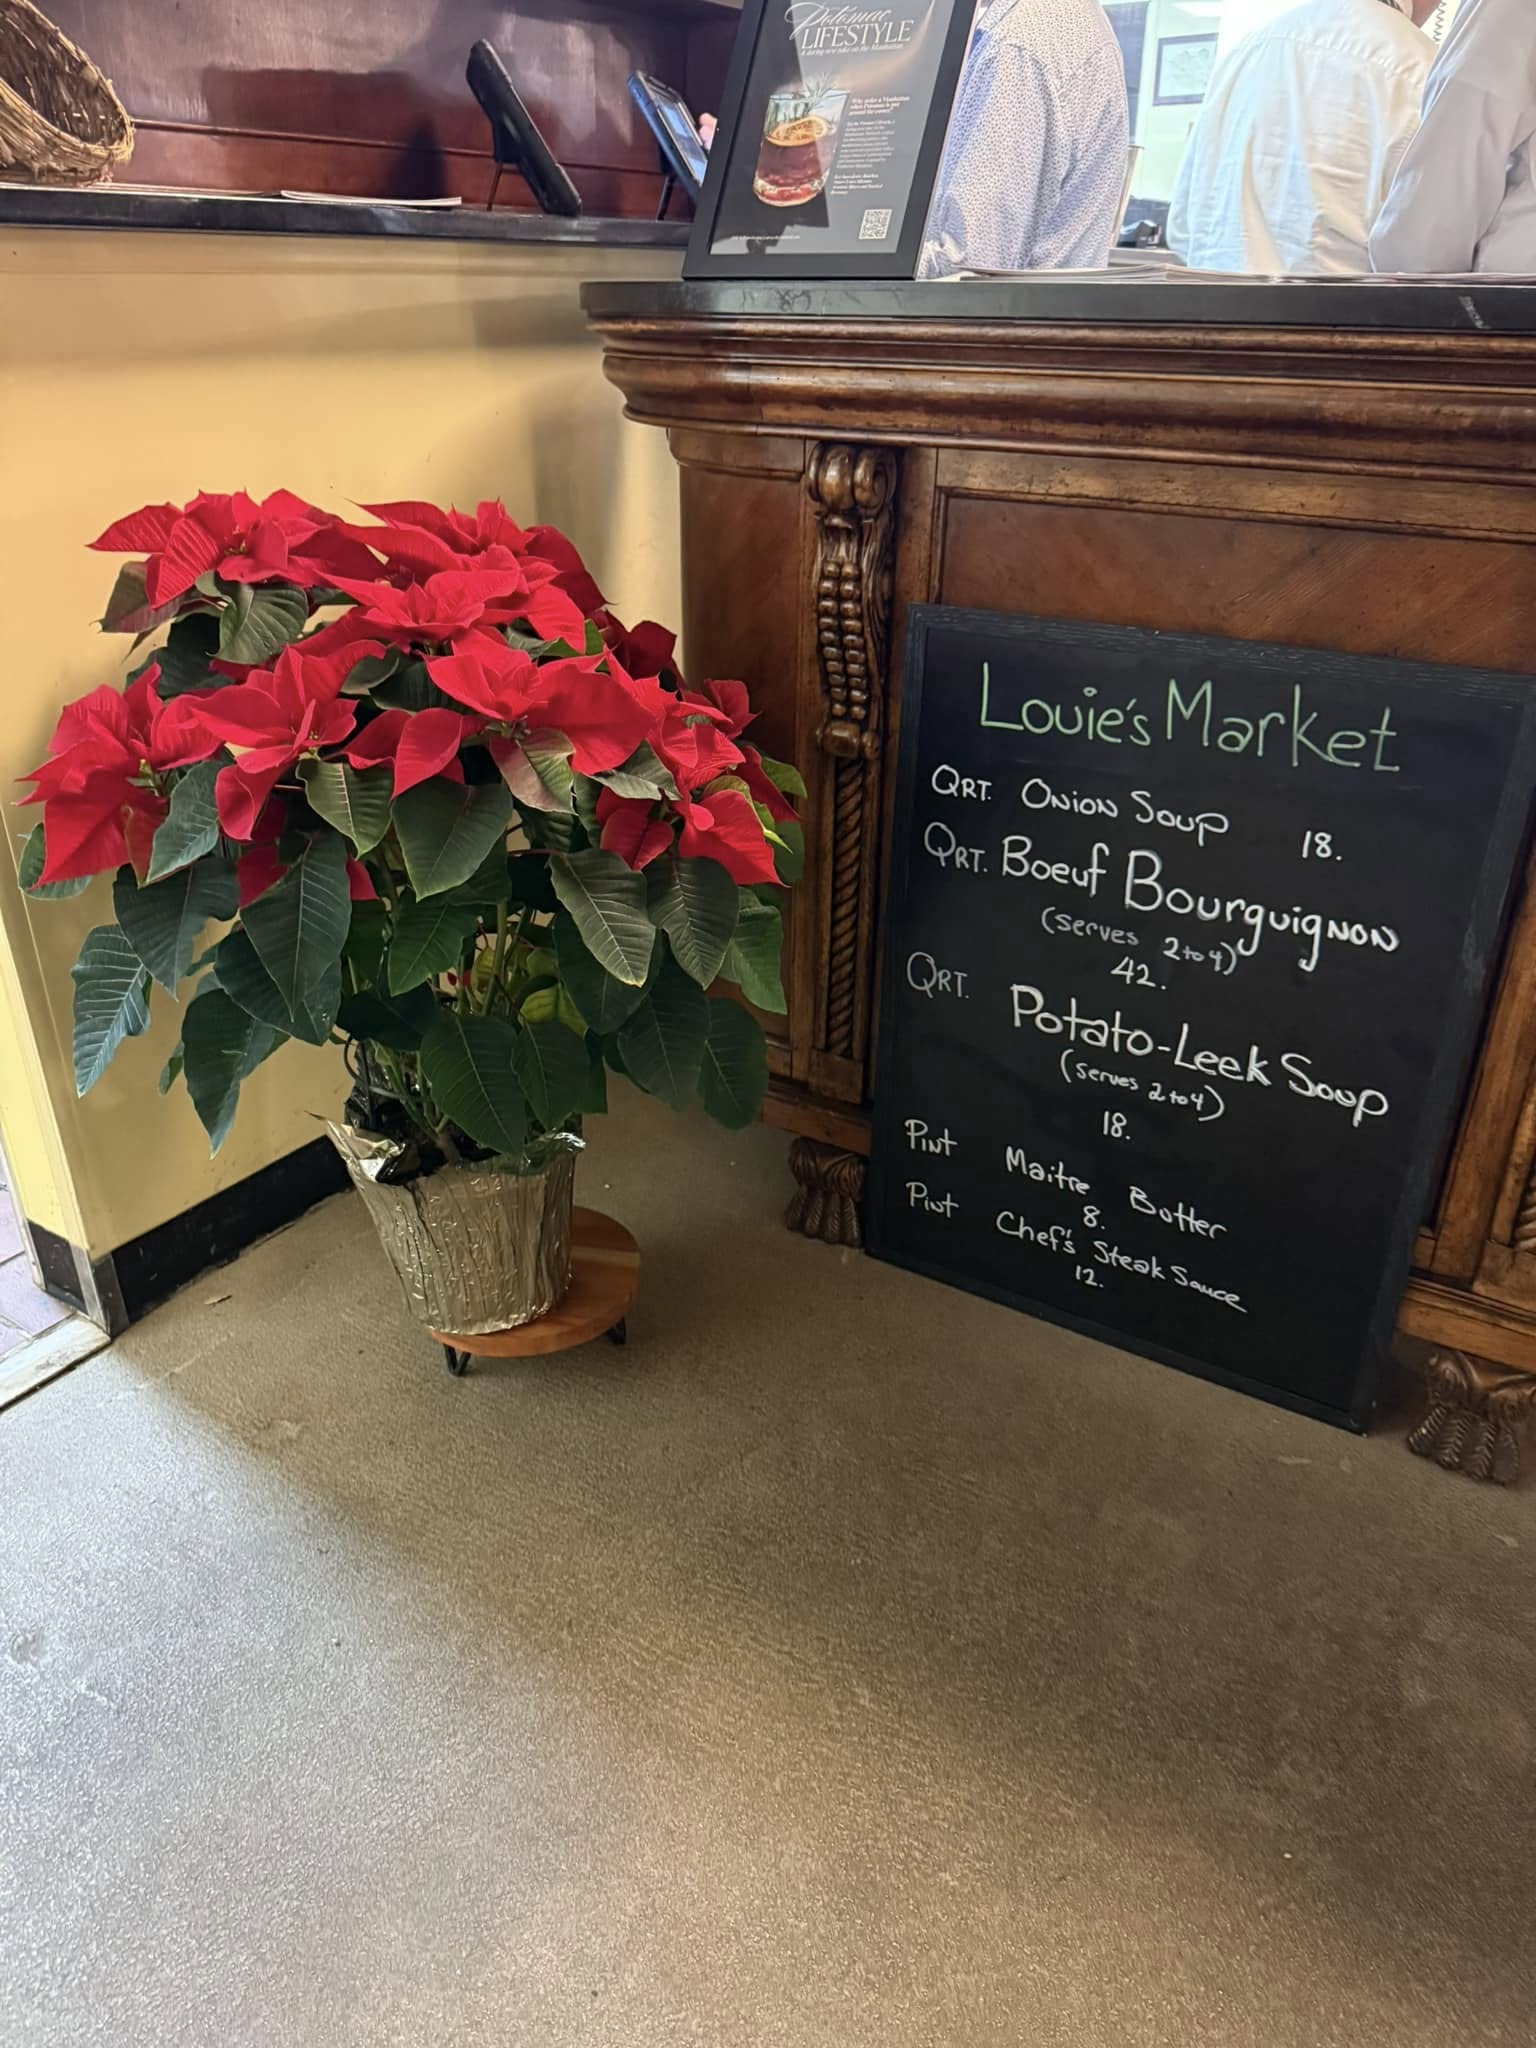 Potomac
LIFESTYLE
A daring new take on the Manhattan.
Louie's Market
QRT. ONION SOUP 18.
QRT. Boeuf BourguigNON
(serves 2 to 4)
42.
QRT. Potato-Leek Soup
(serves 2 to 4)
18.
Pint Maitre Butter
8.
Pint Chef's Steak Sauce
12.